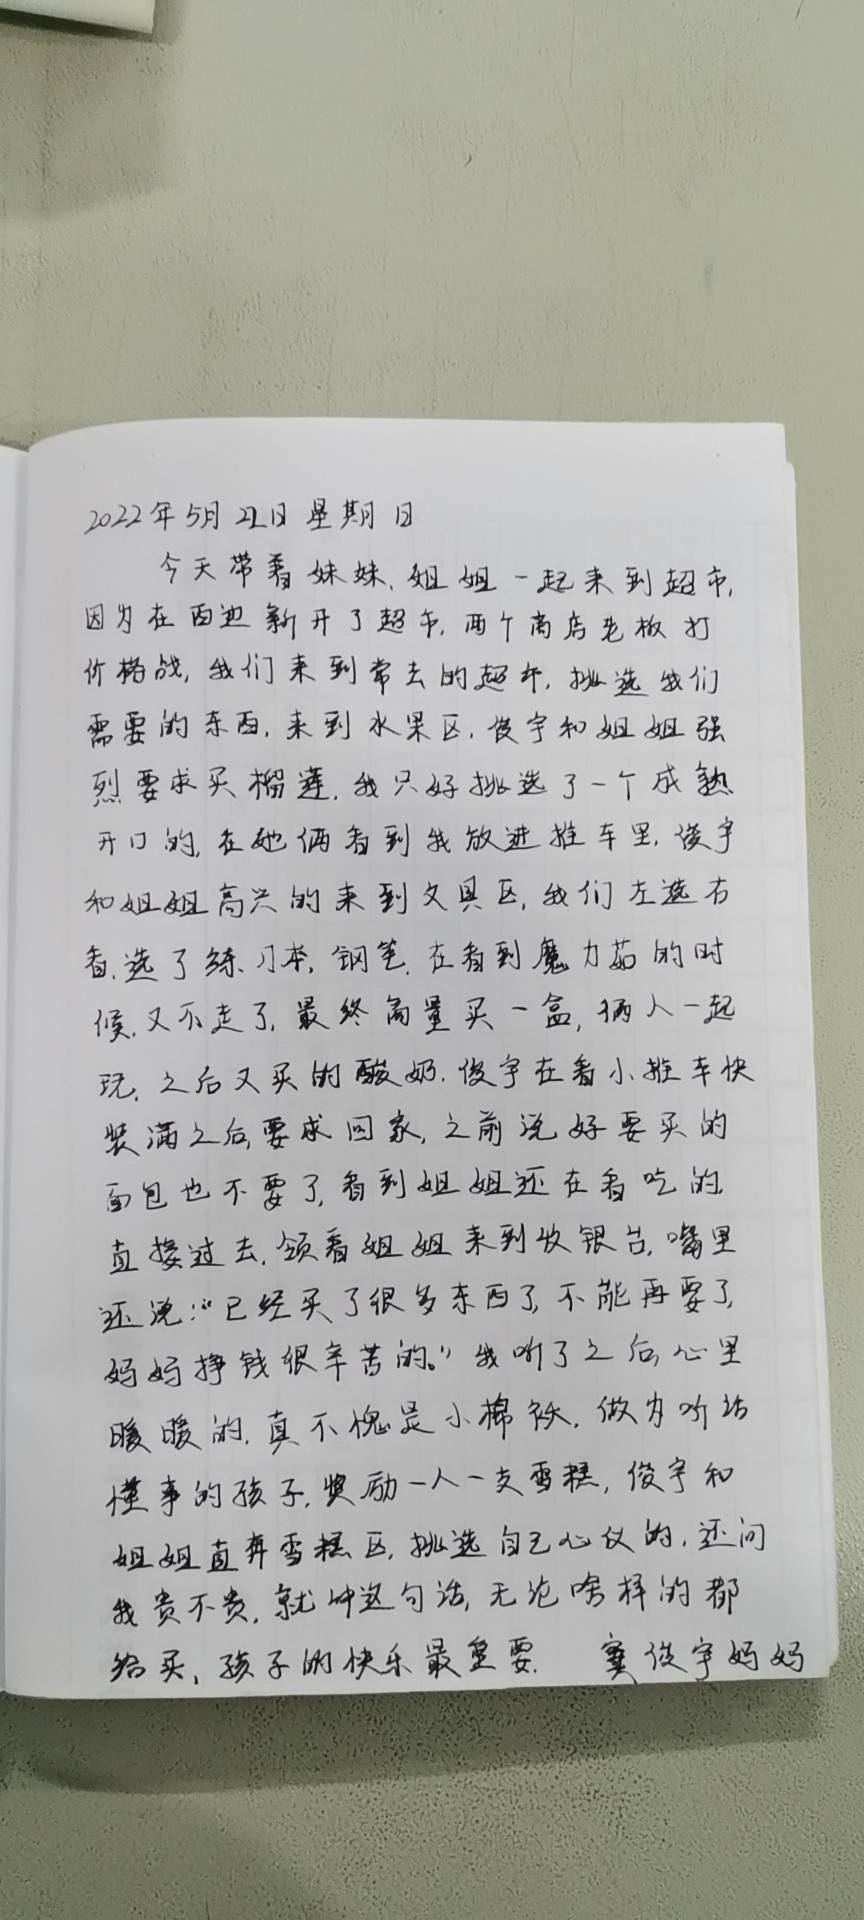 2022年5月22日 星期日
今天带着妹妹、姐姐一起来到超市,
因为在西边新开了超市,两个商店老板打
价格战,我们来到常去的超市,挑选我们
需要的东西,来到水果区,俊宇和姐姐强
烈要求买榴莲,我只好挑选了一个成熟
开口的,在她俩看到我放进推车里,俊宇
和姐姐高兴的来到文具区,我们左选右
看,选了练习本,钢笔,在看到魔力茹的时
候,又不走了,最终商量买一盒,俩人一起
玩,之后又买的酸奶,俊宇在看小推车快
装满之后,要求回家,之前说好要买的
面包也不要了,看到姐姐还在看吃的,
直接过去,领着姐姐来到收银台,嘴里
还说:“已经买了很多东西了,不能再要了,
妈妈挣钱很辛苦的。”我听了之后,心里
暖暖的,真不愧是小棉袄,做为听话
懂事的孩子,奖励一人一支雪糕,俊宇和
姐姐直奔雪糕区,挑选自己心仪的,还问
我贵不贵,就冲这句话,无论啥样的都
给买,孩子的快乐最重要. 俊宇妈妈